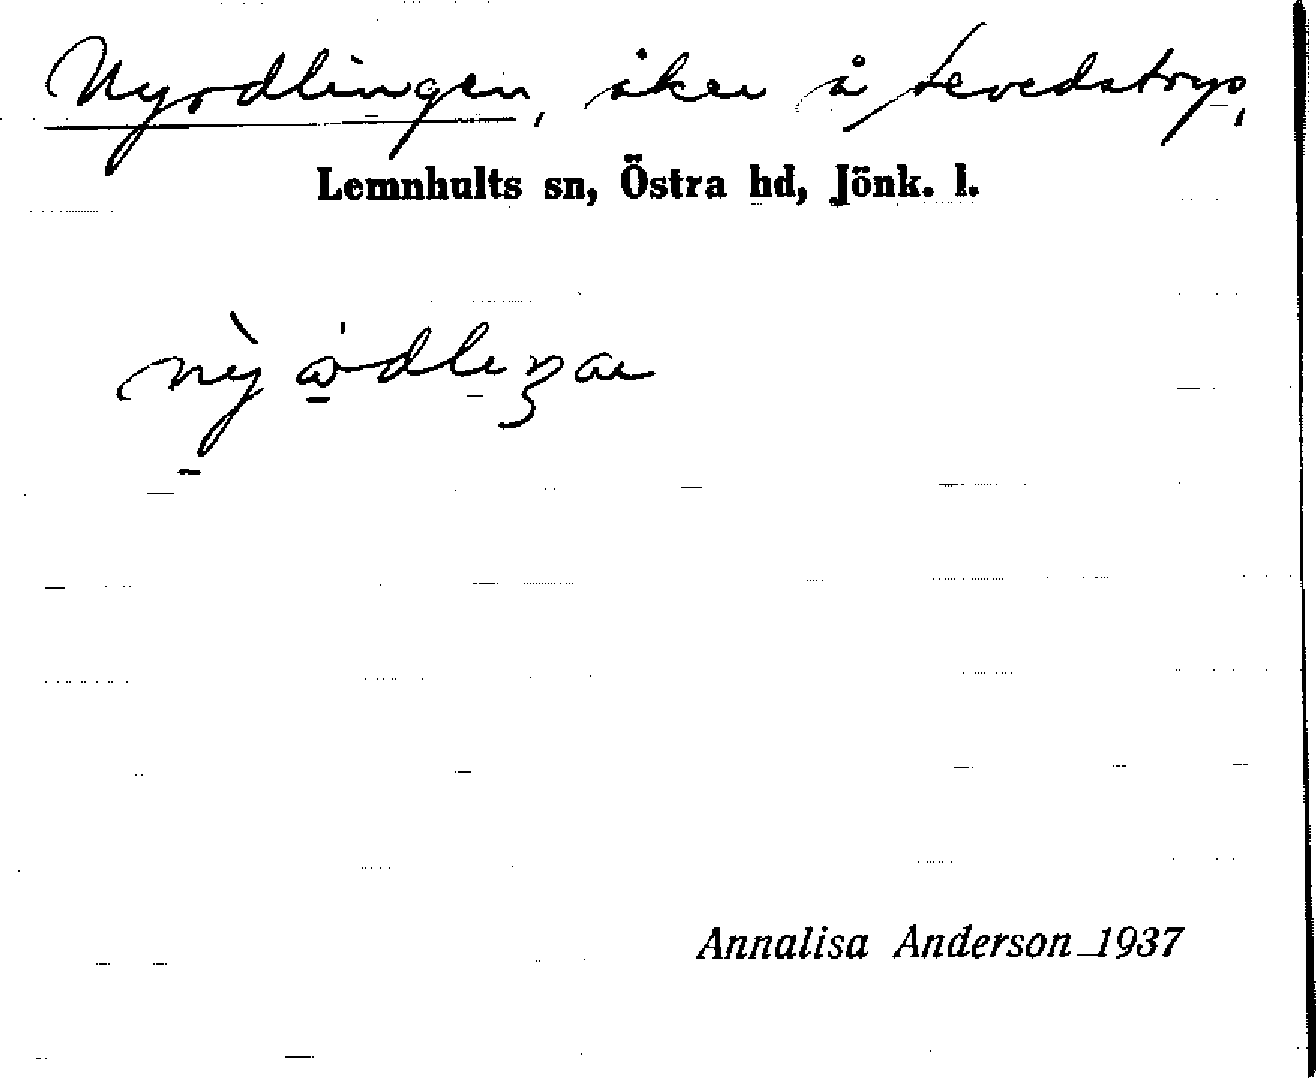 Nyrdlingen, åker å Levedstorp,
Lemnhults sn, Östra hd, Jönk. l.
Annalisa Anderson 1937